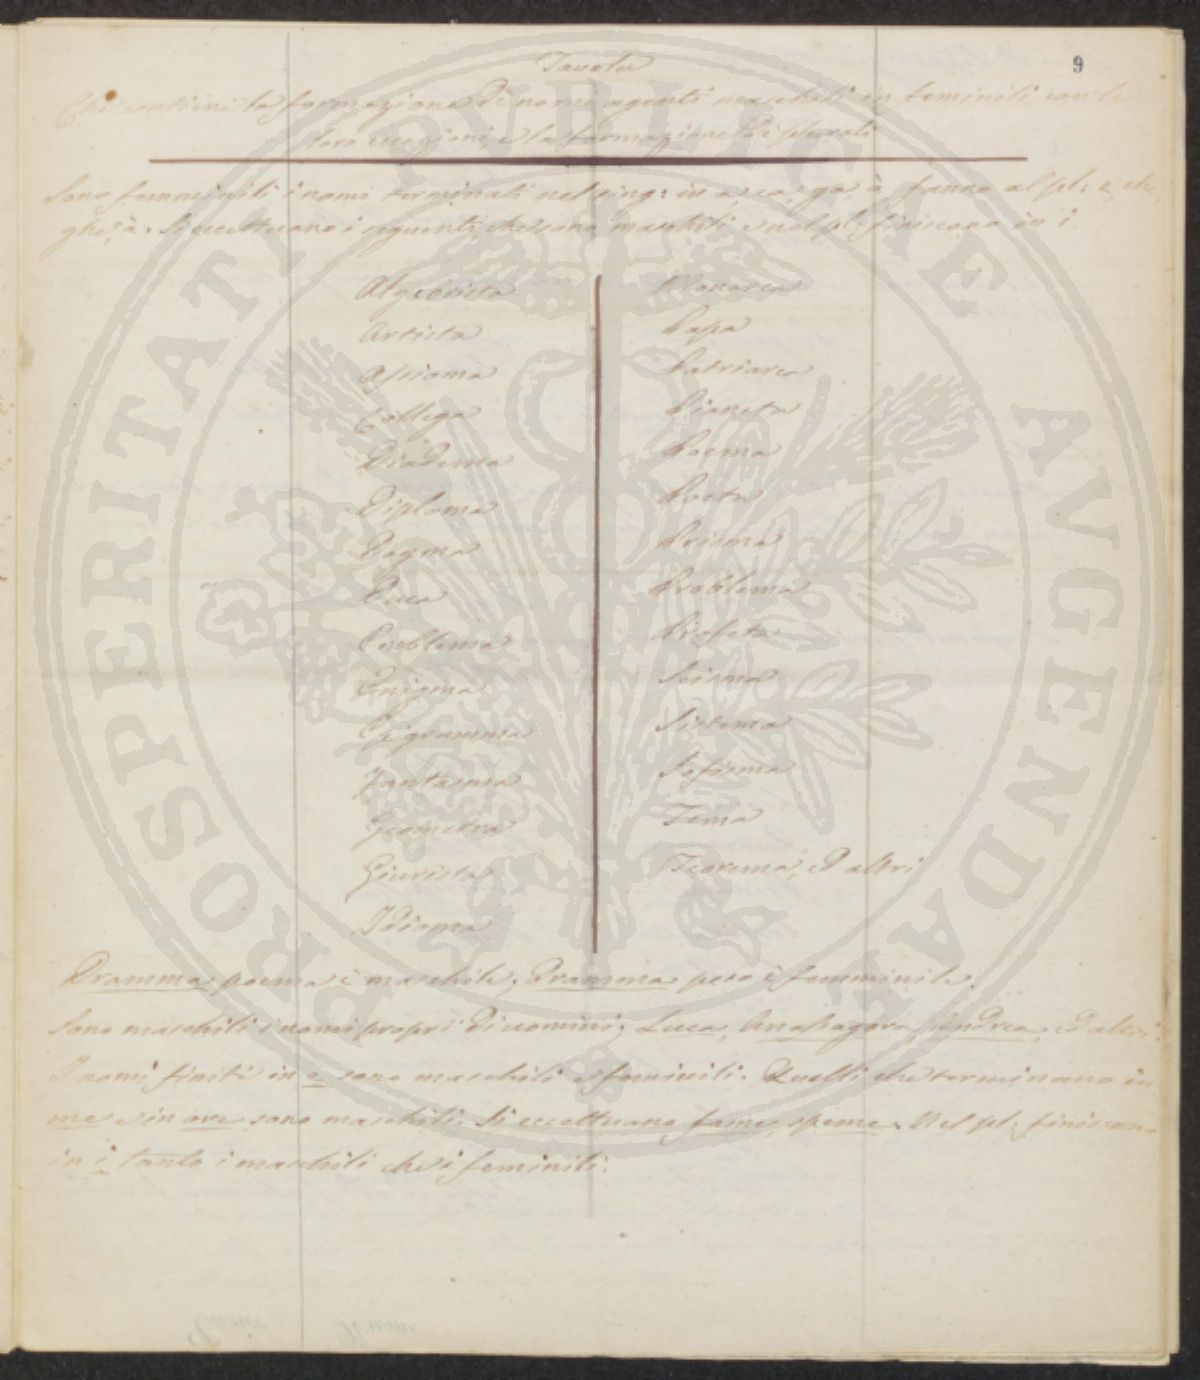 9
Tavola
Che contiene la formazione di nomi agenti maschili in feminili con le
loro eccezioni, e la formazione di plurali
Sono femminili i nomi terminati nel sing: in a, ca, ga, à, fanno al pl: e, che,
ghe, à. Si eccettuano i seguenti, che sono maschili e nel pl: finiscono in i.
Algebrista
Artista
Assioma
Collega
Diadema
Diploma
Dogma
Duca
Emblema
Enigma
Epigramma
Fantasma
Geometra
Giurista
Idioma
Monarca
Papa
Patriarca
Pianeta
Poema
Poeta
Prisma
Problema
Profeta
Scisma
Sistema
Sofisma
Tema
Teorema, ed altri
Dramma poema è maschile; Dramma peso è femminile.
Sono maschili i nomi propri di uomini; Luca, Anassagora, Andrea, ed altri.
I nomi finiti in e sono maschili e feminili. Quelli che terminano in
me e in ore sono maschili. Si eccettuano fame, speme. Nel pl: finiscono
in i tanto i maschili che i feminili.
PROSPERITATI PVBLICAE AVGENDAE